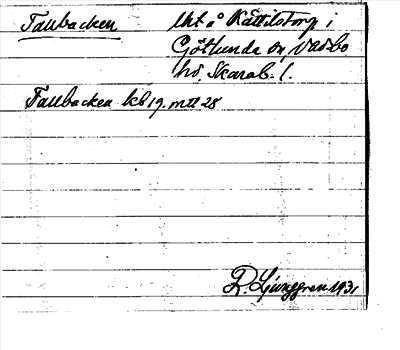 Tallbacken lht å Kättilstorp i
Götlunda sn Vadsbo
hd. Skarab. l.
Tallbacken kb 19. mtl 28
R. Ljunggren 1931